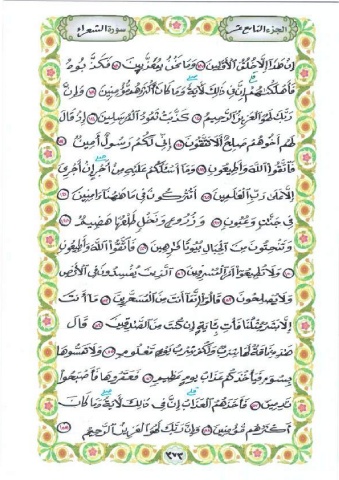 الجزء التاسع عشر
سورة الشعراء
إن هذا إلا خلق الأولين وما نحن بمعذبين فكذبوه
فأهلكناهم إن في ذلك لآية وما كان أكثرهم مؤمنين وإن
ربك لهو العزيز الرحيم كذبت ثمود المرسلين إذ قال
لهم أخوهم صالح ألا تتقون إني لكم رسول أمين
فاتقوا الله وأطيعون وما أسئلكم عليه من أجر إن أجري
إلا على رب العالمين أتتركون في ما ههنا ءامنين
في جنات وعيون وزروع ونخل طلعها هضيم
وتنحتون من الجبال بيوتا فارهين فاتقوا الله وأطيعون
ولا تطيعوا أمر المسرفين الذين يفسدون في الأرض
ولا يصلحون قالوا إنما أنت من المسحرين ما أنت
إلا بشر مثلنا فأت بآية إن كنت من الصادقين قال
هذه ناقة لها شرب ولكم شرب يوم معلوم ولا تمسوها
بسوء فيأخذكم عذاب يوم عظيم فعقروها فأصبحوا
نادمين فأخذهم العذاب إن في ذلك لآية وما كان
أكثرهم مؤمنين وإن ربك لهو العزيز الرحيم
٣٧٣